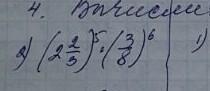 4. Вычисли
2) (2 2/3)^5 · (3/8)^6 1)